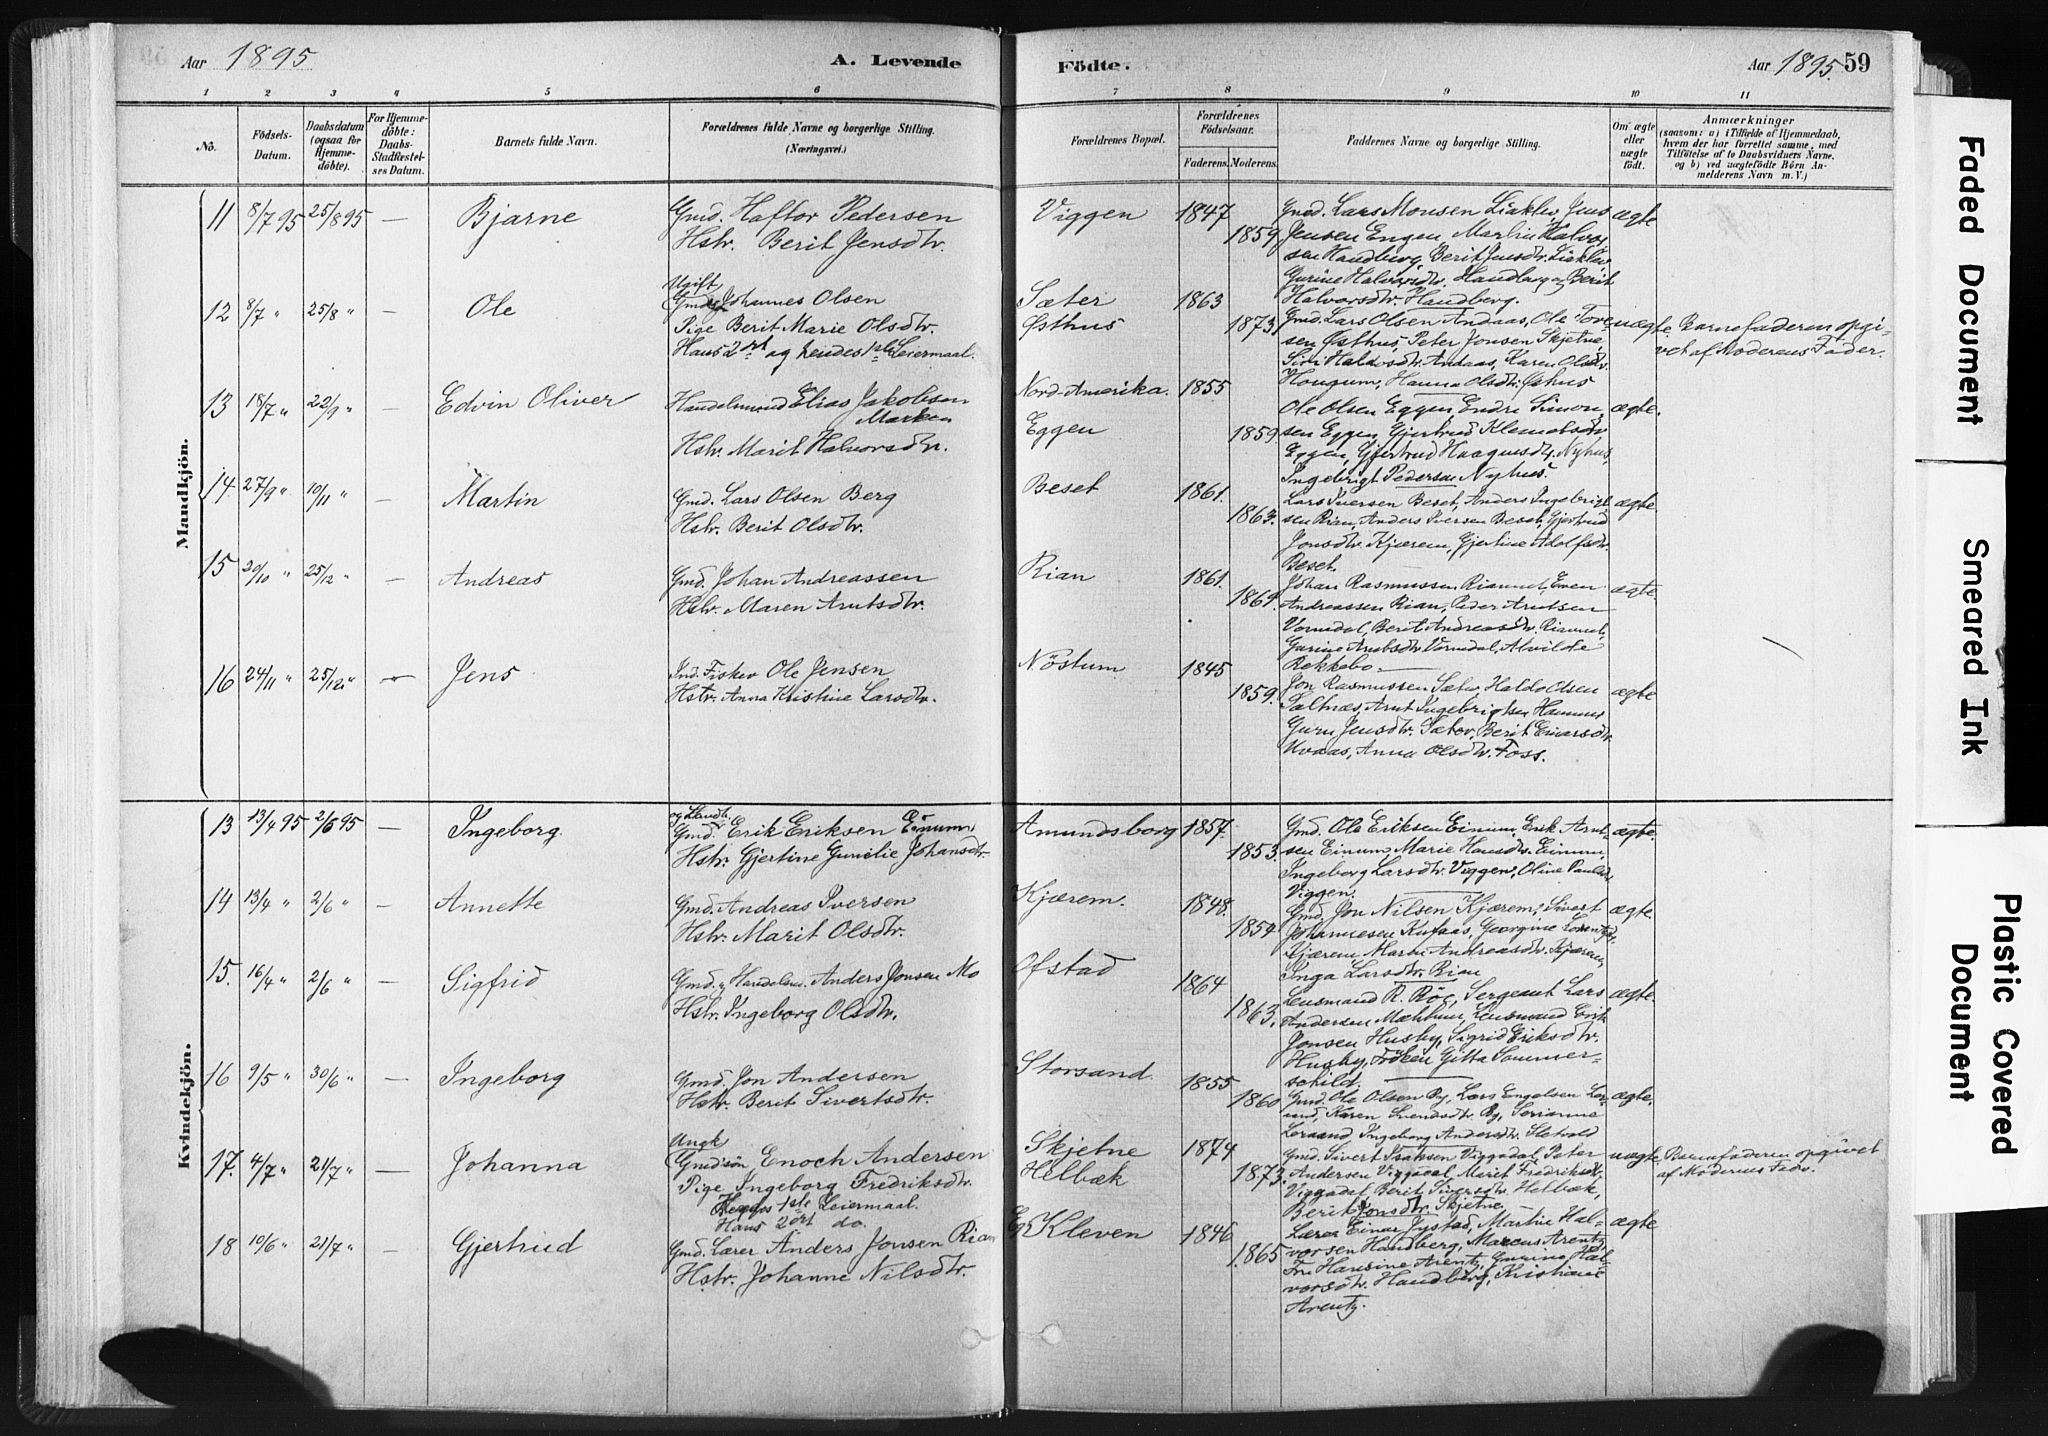 Aar 1895
A. Levende
Födte.
Aar 1895. 59
1 2 3 4 5 6 7 8 9 10 11
Nô.
Födsels-
Datum.
Daabsdatum
(ogsaa for
Hjemme-
döbte).
For Hjemme-
döbte:
Daabs-
Stadfæstel-
ses Datum.
Barnets fulde Navn.
Forældrenes fulde Navne og borgerlige Stilling.
(Næringsvei.)
Forældrenes Bopæl.
Forældrenes
Födselsaar.
Faderens. Moderens.
Faddernes Navne og borgerlige Stilling.
Om ægte
eller
uægte
födt.
Anmærkninger
(saasom: a) i Tilfælde af Hjemmedaab,
hvem der har forrettet samme, med
Tilföielse af to Daabsvidners Navne,
og b) ved uægtefödte Börn An-
melderens Navn m. V.)
Mandkjön.
11 8/7 95 25/8 95 — Bjarne
Gmd. Haftor Pedersen
Hstr. Berit Jensdtr.
Viggen 1847
1859.
Gmd. Lars Monsen Liaklev, Jens
Jensen Engen, Martin Halvor-
sen Handberg, Berit Jensdtr. Liaklev
Gurine Halvorsdtr. Handberg, Berit
Halvorsdtr. Handberg.
ægte
12 8/7 " 25/8 " — Ole
Ugift
Gmds. Johannes Olsen
Pige Berit Marie Olsdtr.
Hans 2det og hendes 1ste Leiermaal.
Sæter 1863
Østhus 1873
Gmd. Lars Olsen Andaas, Ole Tore-
sen Østhus, Peter Jonsen Skjetne,
Siri Haldosdtr. Andaas, Karen Olsdtr.
Hougum, Hanna Olsdtr. Østhus
uægte. Barnefaderen opgi-
vet af Moderens Fader.
13 18/7 " 22/9 " — Edvin Oliver
Handelsmand Elias Jakobsen
Marken
Hstr. Marit Halvorsdtr.
Nord-Amerika. 1855
Eggen 1859.
Ole Olsen Eggen, Endre Simon-
sen Eggen, Gjertrud Klemetsdtr.
Eggen, Gjertrud Haagensdtr. Nyhus,
Ingebrigt Pedersen Nyhus.
ægte.
14 27/9 " 10/11 " — Martin
Gmd. Lars Olsen Berg
Hstr. Berit Olsdtr.
Beset 1861.
1863.
Lars Iversen Beset, Anders Ingebrigt-
sen Rian, Anders Iversen Beset, Gjertrud
Jonsdtr. Kjærem, Gjertine Adolfsdtr.
Beset.
ægte.
15 20/10 " 25/12 " — Andreas
Gmd. Johan Andreassen
Hstr. Maren Arntsdtr.
Rian 1861.
1869.
Johan Rasmussen Riannet, Even
Andreassen Rian, Peder Arntsen
Vormdal, Berit Andreasdtr. Riannet,
Gurine Arntsdtr. Vormdal, Alvilde
Rekkebo.
ægte.
16 24/11 " 25/12 " — Jens
Ind. Fisker Ole Jensen
Hstr. Anna Kristine Larsdtr.
Nöstum 1845
1859.
Jon Rasmussen Sæter, Haldo Olsen
Saltnæs, Arnt Ingebrigtsen Hammer
Guru Jensdtr. Sæter, Berit Einarsdtr.
Kvaas, Anna Olsdtr. Foss.
ægte
Kvindekjön.
13 13/4 95 2/6 95 — Ingeborg.
og Handl.
Gmd. Erik Eriksen Einum,
Hstr. Gjertine Gurelie Johansdtr.
Amundsborg 1857.
1853.
Gmd. Ole Eriksen Einum, Erik Arnt-
sen Einum, Marie Hansdtr. Einum,
Ingeborg Larsdtr. Viggen, Oline Paulsd.
Viggen.
ægte.
14 13/4 " 2/6 " — Annette
Gmd. Andreas Iversen
Hstr. Marit Olsdtr.
Kjærem. 1848.
1854
Gmd. Jon Nilsen Kjærem, Sivert
Johannesen Kufaas, Georgine Lorentzd.
Kjærem, Maren Andreasdtr. Kjærem,
Inga Larsdtr. Rian
ægte.
15. 16/4 " 2/6 " — Sigfrid
Gmd. Handelsm. Anders Jonsen Mo
Hstr. Ingeborg Olsdtr.
Ofstad 1864
1863.
Lensmand R. Röe, Sergeant Lars
Andersen Mælhum, Lensmand Erik
Jonsen Husby, Sigrid Eriksdtr.
Husby, Fröken Gitta Sommer-
schild.
ægte.
16 9/5 " 30/6 " — Ingeborg
Gmd. Jon Andersen
Hstr. Berit Sivertsdtr.
Storsand 1855
1860
Gmd. Ole Olsen By, Lars Engelsen Ler-
and, Karen Svendsdtr. By, Serianne
Leraand, Ingeborg Andersdtr. Sletvold
ægte.
17. 4/7 " 21/7 " — Johanna
Ungk
Gmdsön Enoch Andersen
Pige Ingeborg Fredriksdtr.
Hendes 1ste Leiermaal.
Hans 2det do.
Skjetne 1874
Helbæk 1873.
Gmd. Sivert Isaksen Viggadal, Peter
Andersen Viggadal, Marit Fredriksdtr.
Viggadal, Berit Siversdtr. Helbæk,
Berit Jonsdtr. Skjetne,
uægte. Barnefaderen opgivet
af Moderens Fader.
18 10/6 " 21/7 " — Gjertrud
Gmd. Lærer Anders Jonsen Rian
Hstr. Johanne Nilsdtr.
Kleven 1846
1865
Lærer Einar Jystad, Martin Hal-
vorsen Handberg, Marcus Arentz,
Fru Hansine Arentz, Gurine Hal-
vorsdtr. Handberg, Kristiane
Arentz.
ægte
Faded Document
Smeared Ink
Plastic Covered
Document